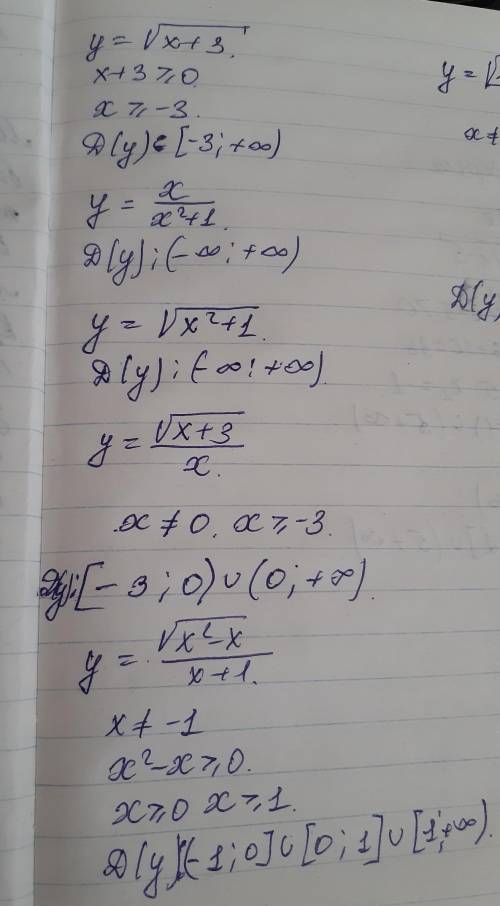 y = √(x+3).
x+3 ⩾ 0.
x ⩾ -3.
Д(y) ∈ [-3; +∞)
y = x/(x²+1).
Д(y): (-∞; +∞)
y = √(x²+1).
Д(y): (-∞; +∞).
y = √(x+3)/x.
x ≠ 0, x ⩾ -3.
Д(y): [-3; 0) ∪ (0; +∞).
y = √(x²-x)/(x+1).
x ≠ -1
x²-x ⩾ 0.
x ⩾ 0 x ⩾ 1.
Д(y) (-1; 0] ∪ [0; 1] ∪ [1; +∞).
y = √
x ≠
Д(y)